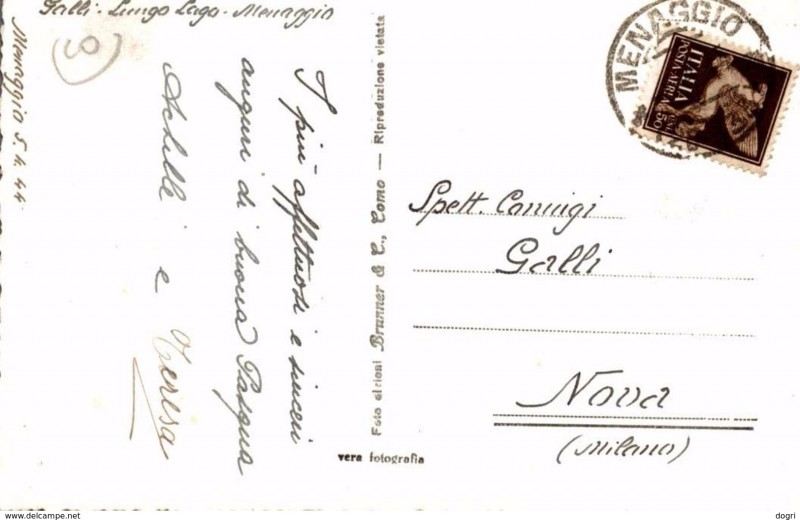 Galli - Lungo Lago - Menaggio
Menaggio 5.4.44
I più affettuosi e sinceri
auguri di buona Pasqua
Achille e Teresa
Foto edizioni Brunner & C., Como — Riproduzione vietata
vera fotografia
MENAGGIO
ITALIA
POSTA AEREA
Spett. Coniugi
Galli
Nova
(Milano)
dogri